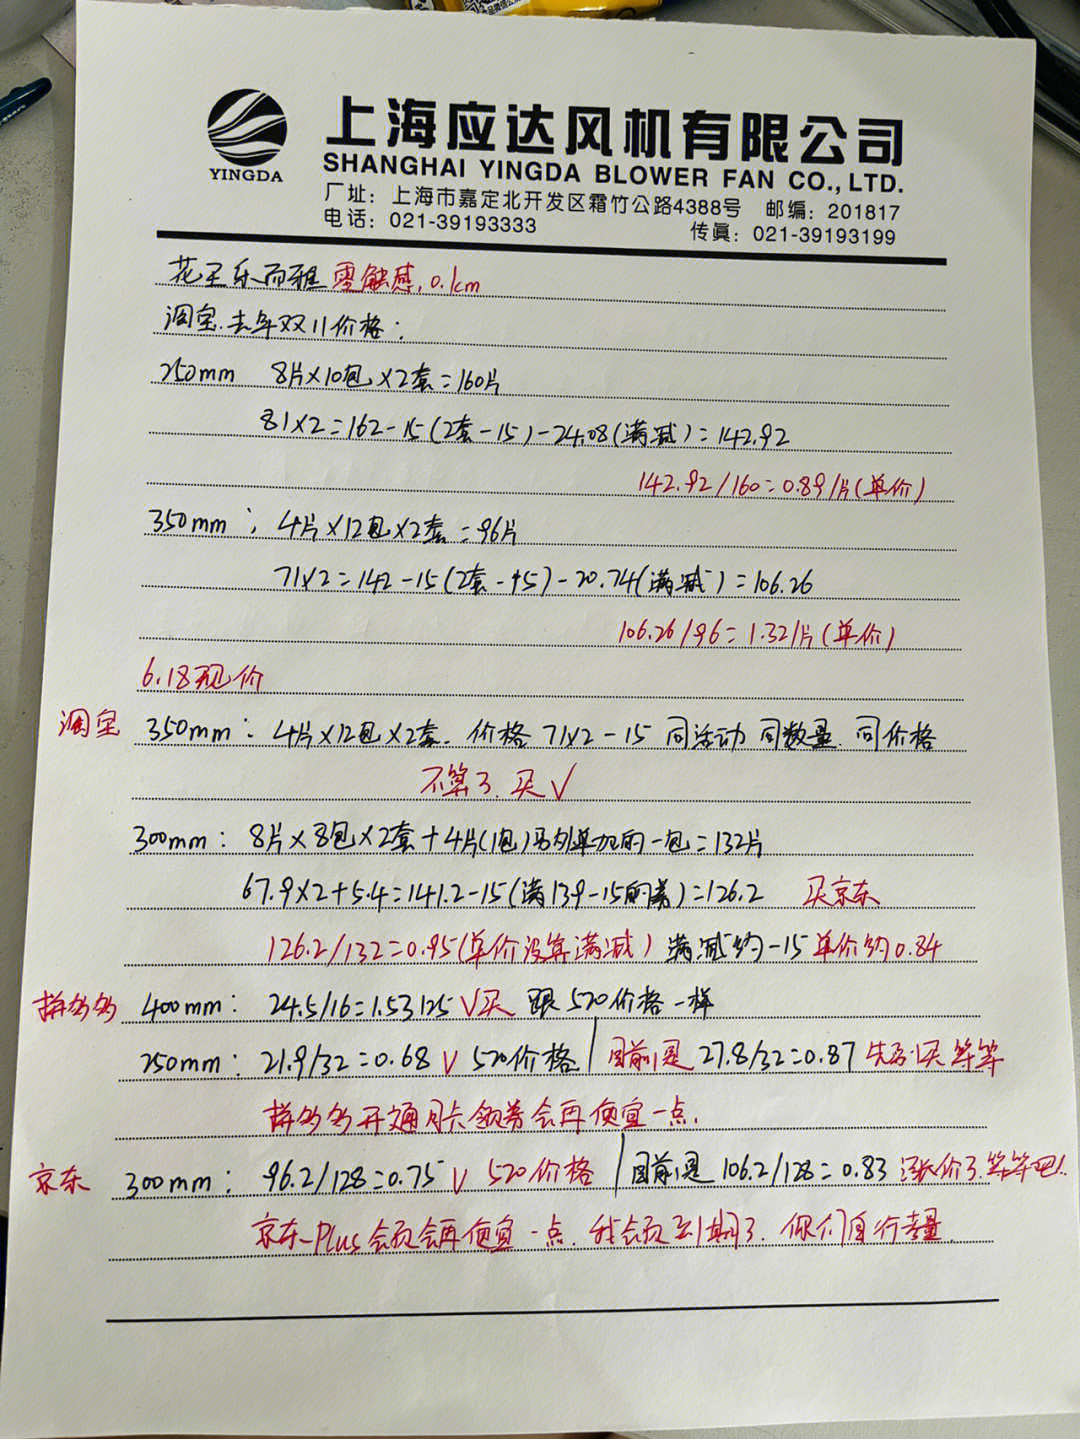 YINGDA
上海应达风机有限公司
SHANGHAI YINGDA BLOWER FAN CO., LTD.
厂址：上海市嘉定北开发区霜竹公路4388号 邮编：201817
电话：021-39193333 传真：021-39193199
花王乐而雅 零触感，0.1cm
淘宝.去年双11价格：
250mm 8片×10包×2套=160片
81×2=162-15(2套-15)-24.08(满减)=142.92
142.92/160=0.89/片(单价)
350mm： 4片×12包×2套=96片
71×2=142-15(2套-15)-20.74(满减)=106.26
106.26/96=1.32/片(单价)
6.18现价
淘宝 350mm：4片×12包×2套. 价格 71×2-15 同活动 同数量.同价格
不算了.买√
300mm：8片×8包×2套+4片(1包)另外单加的一包=132片
67.9×2+5.4=141.2-15(满139-15的券)=126.2 买京东
126.2/132=0.95(单价没算满减) 满减约-15 单价约0.84
拼多多 400mm：24.5/16=1.53125 √买 跟520价格一样
250mm：21.9/32=0.68 √ 520价格 / 目前是 27.8/32=0.87 先别买 等等
拼多多开通月卡领券会再便宜一点.
京东 300mm：96.2/128=0.75 √ 520价格 / 目前是 106.2/128=0.83 涨价了.等等吧!
京东Plus会员会再便宜一点.我会员到期了.你们自行考量.